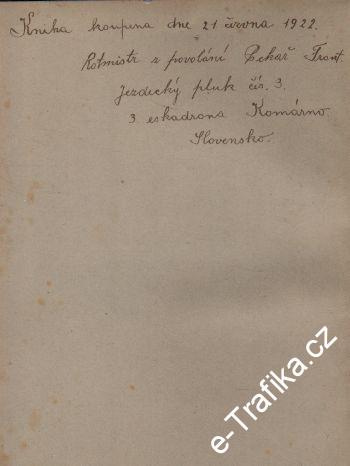 Kniha koupena dne 21 června 1922.
Rotmistr z povolání Pekař Frant.
Jezdecký pluk čís. 3.
3 eskadrona Komárno.
Slovensko.
e-Trafika.cz